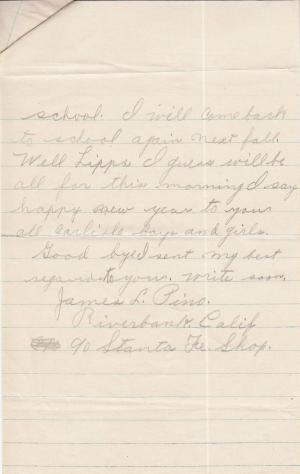 school. I will come back
to school again next fall.
Well Lipps I guess will be
all for this morning I say
happy new year to your
all Carlisle boys and girls.
Good bye I sent my best
regard to your. write soon.
James L. Pino.
Riverbank. Calif
90 Stanta Fe. Shop.